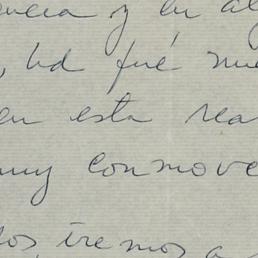 y en al
, Ud fué nue
en esta rea
muy conmove
dos, iremos a